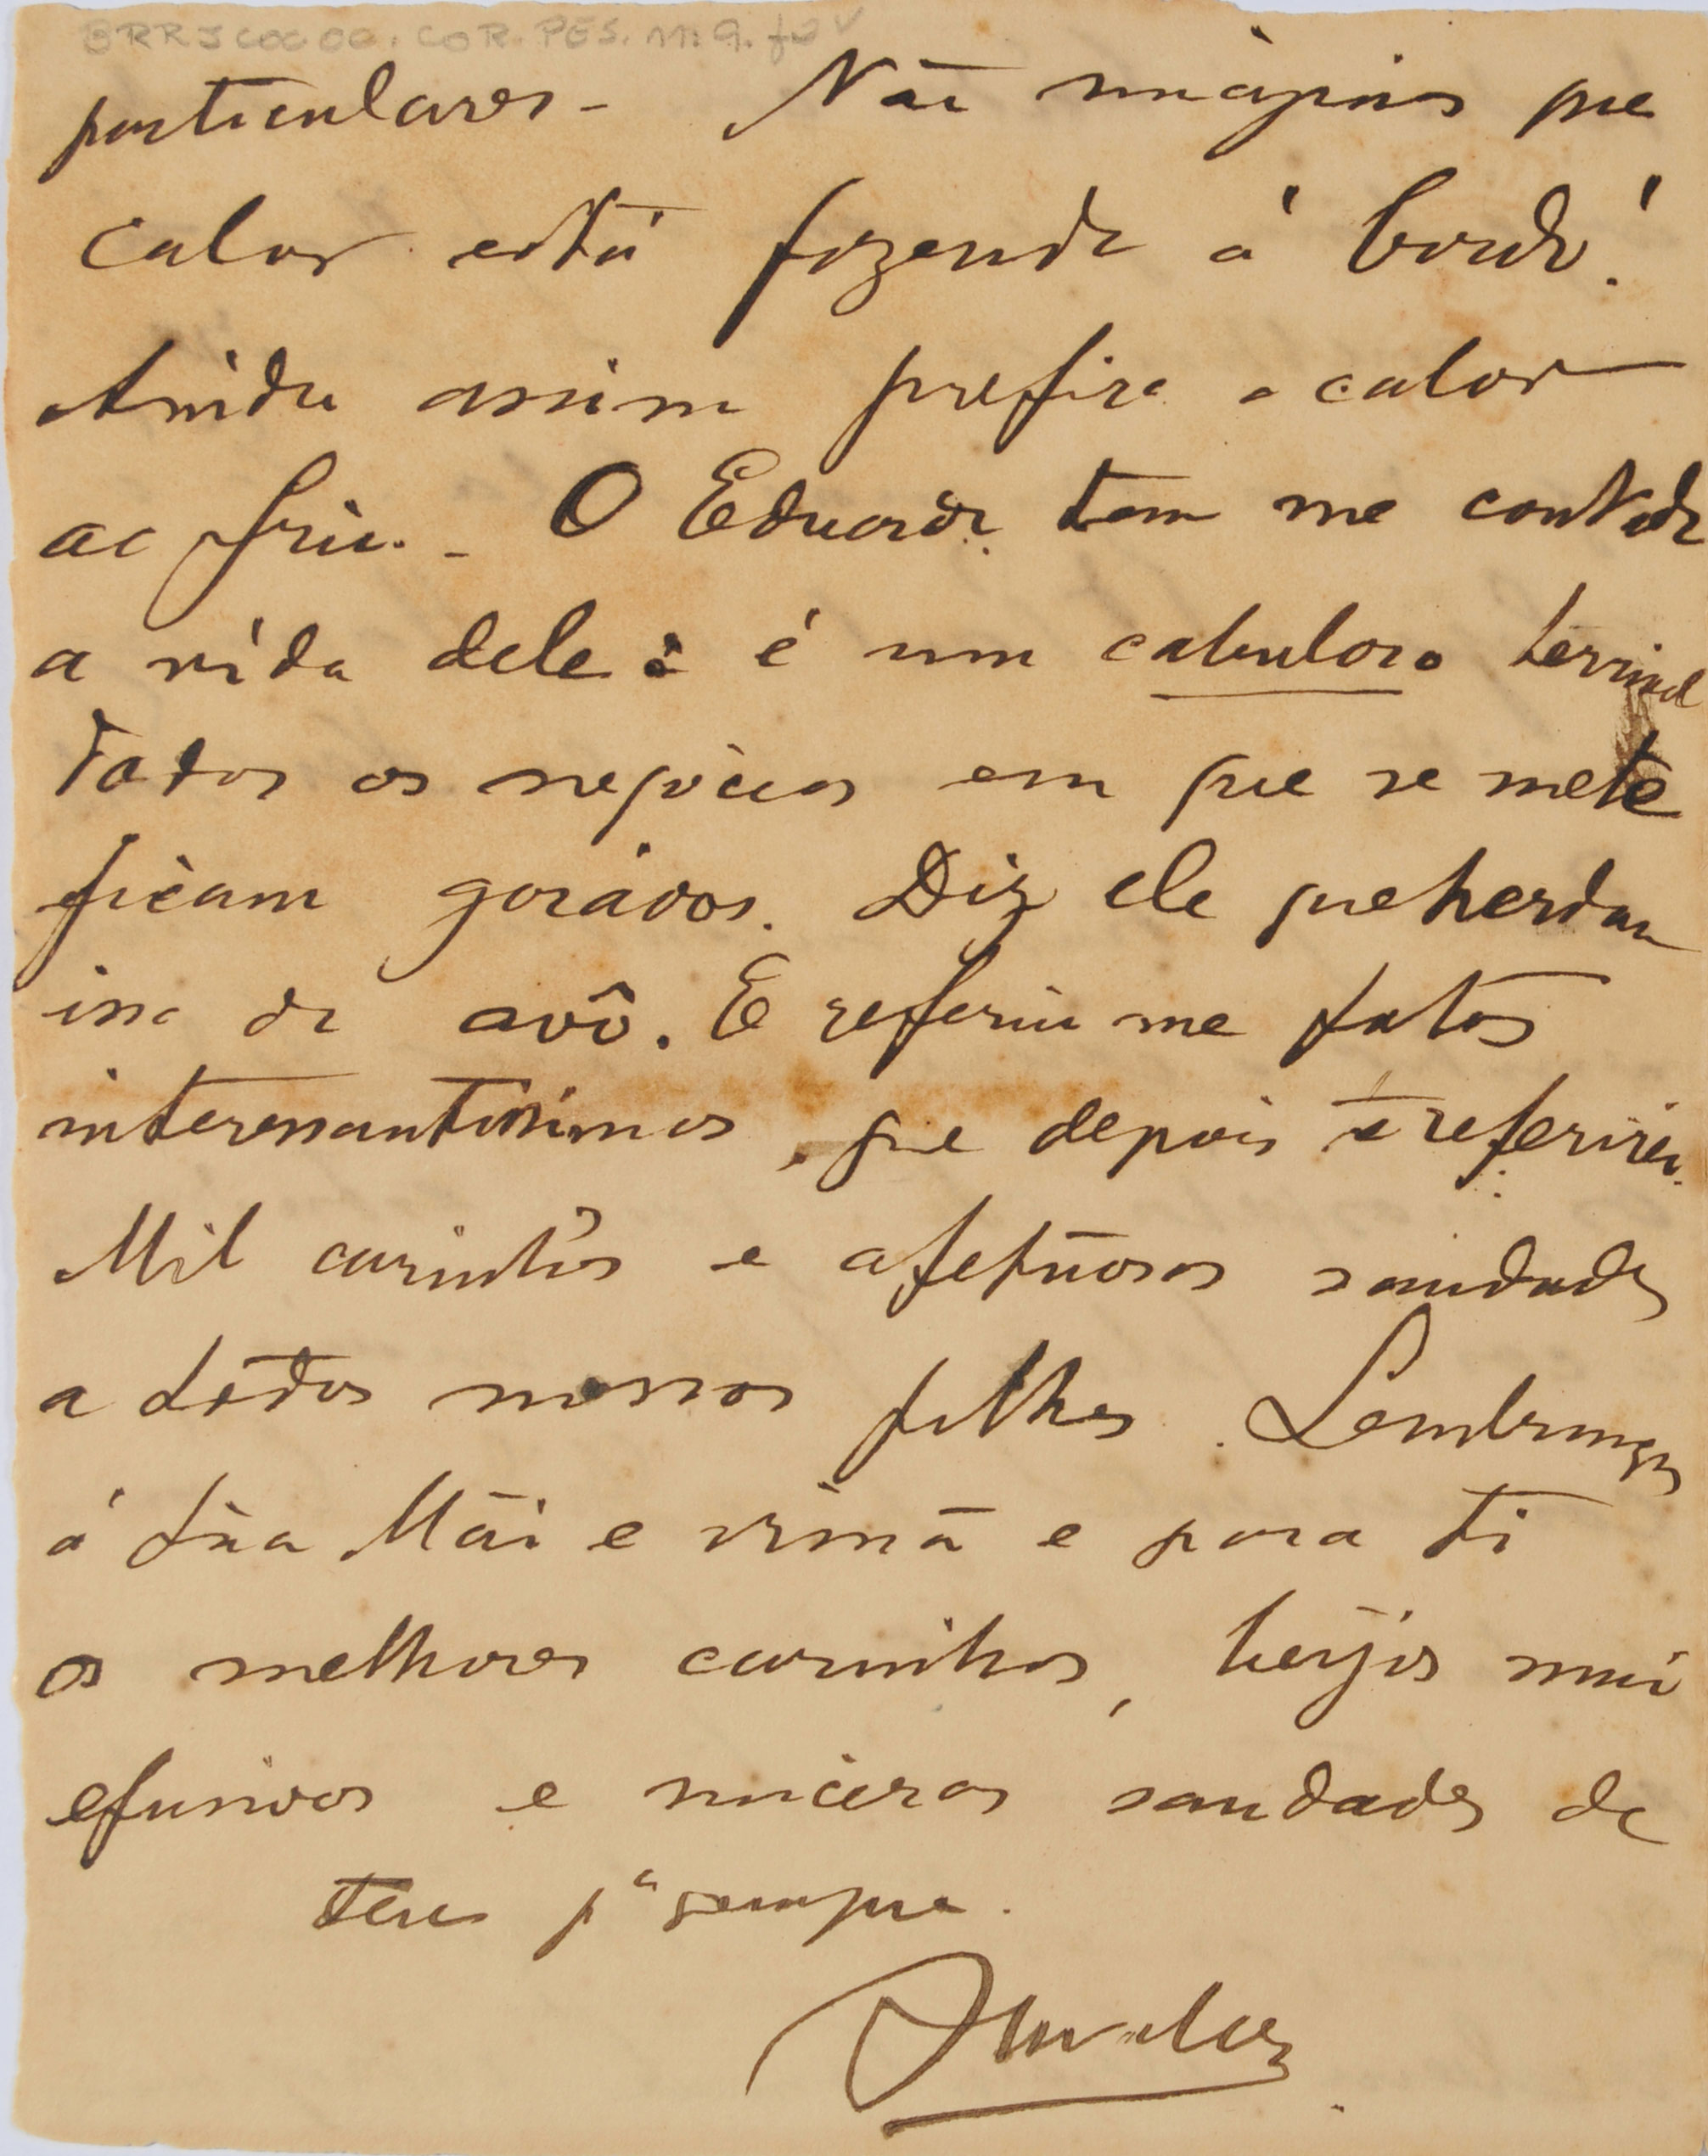 BRRJCOCOC.COR.PES.11.9.f2v
particulares - Não imaginas que
calor está fazendo á bordo!
Ainda assim prefiro o calor
ao frio. - O Eduardo tem me contado
a vida dele: é um cabuloso terrivel
todos os negocios em que se mete
ficam gorádos. Diz ele que herdou
isso do avô. E referiu me fatos
interessantissimos, que depois te referirei.
Mil carinhos e afetuosos saudades
a todos nossos filhos. Lembranças
á túa Mãi e irmã e para ti
os melhores carinhos, beijos mui
efusivos e sinceras saudades de
teu pª sempre.